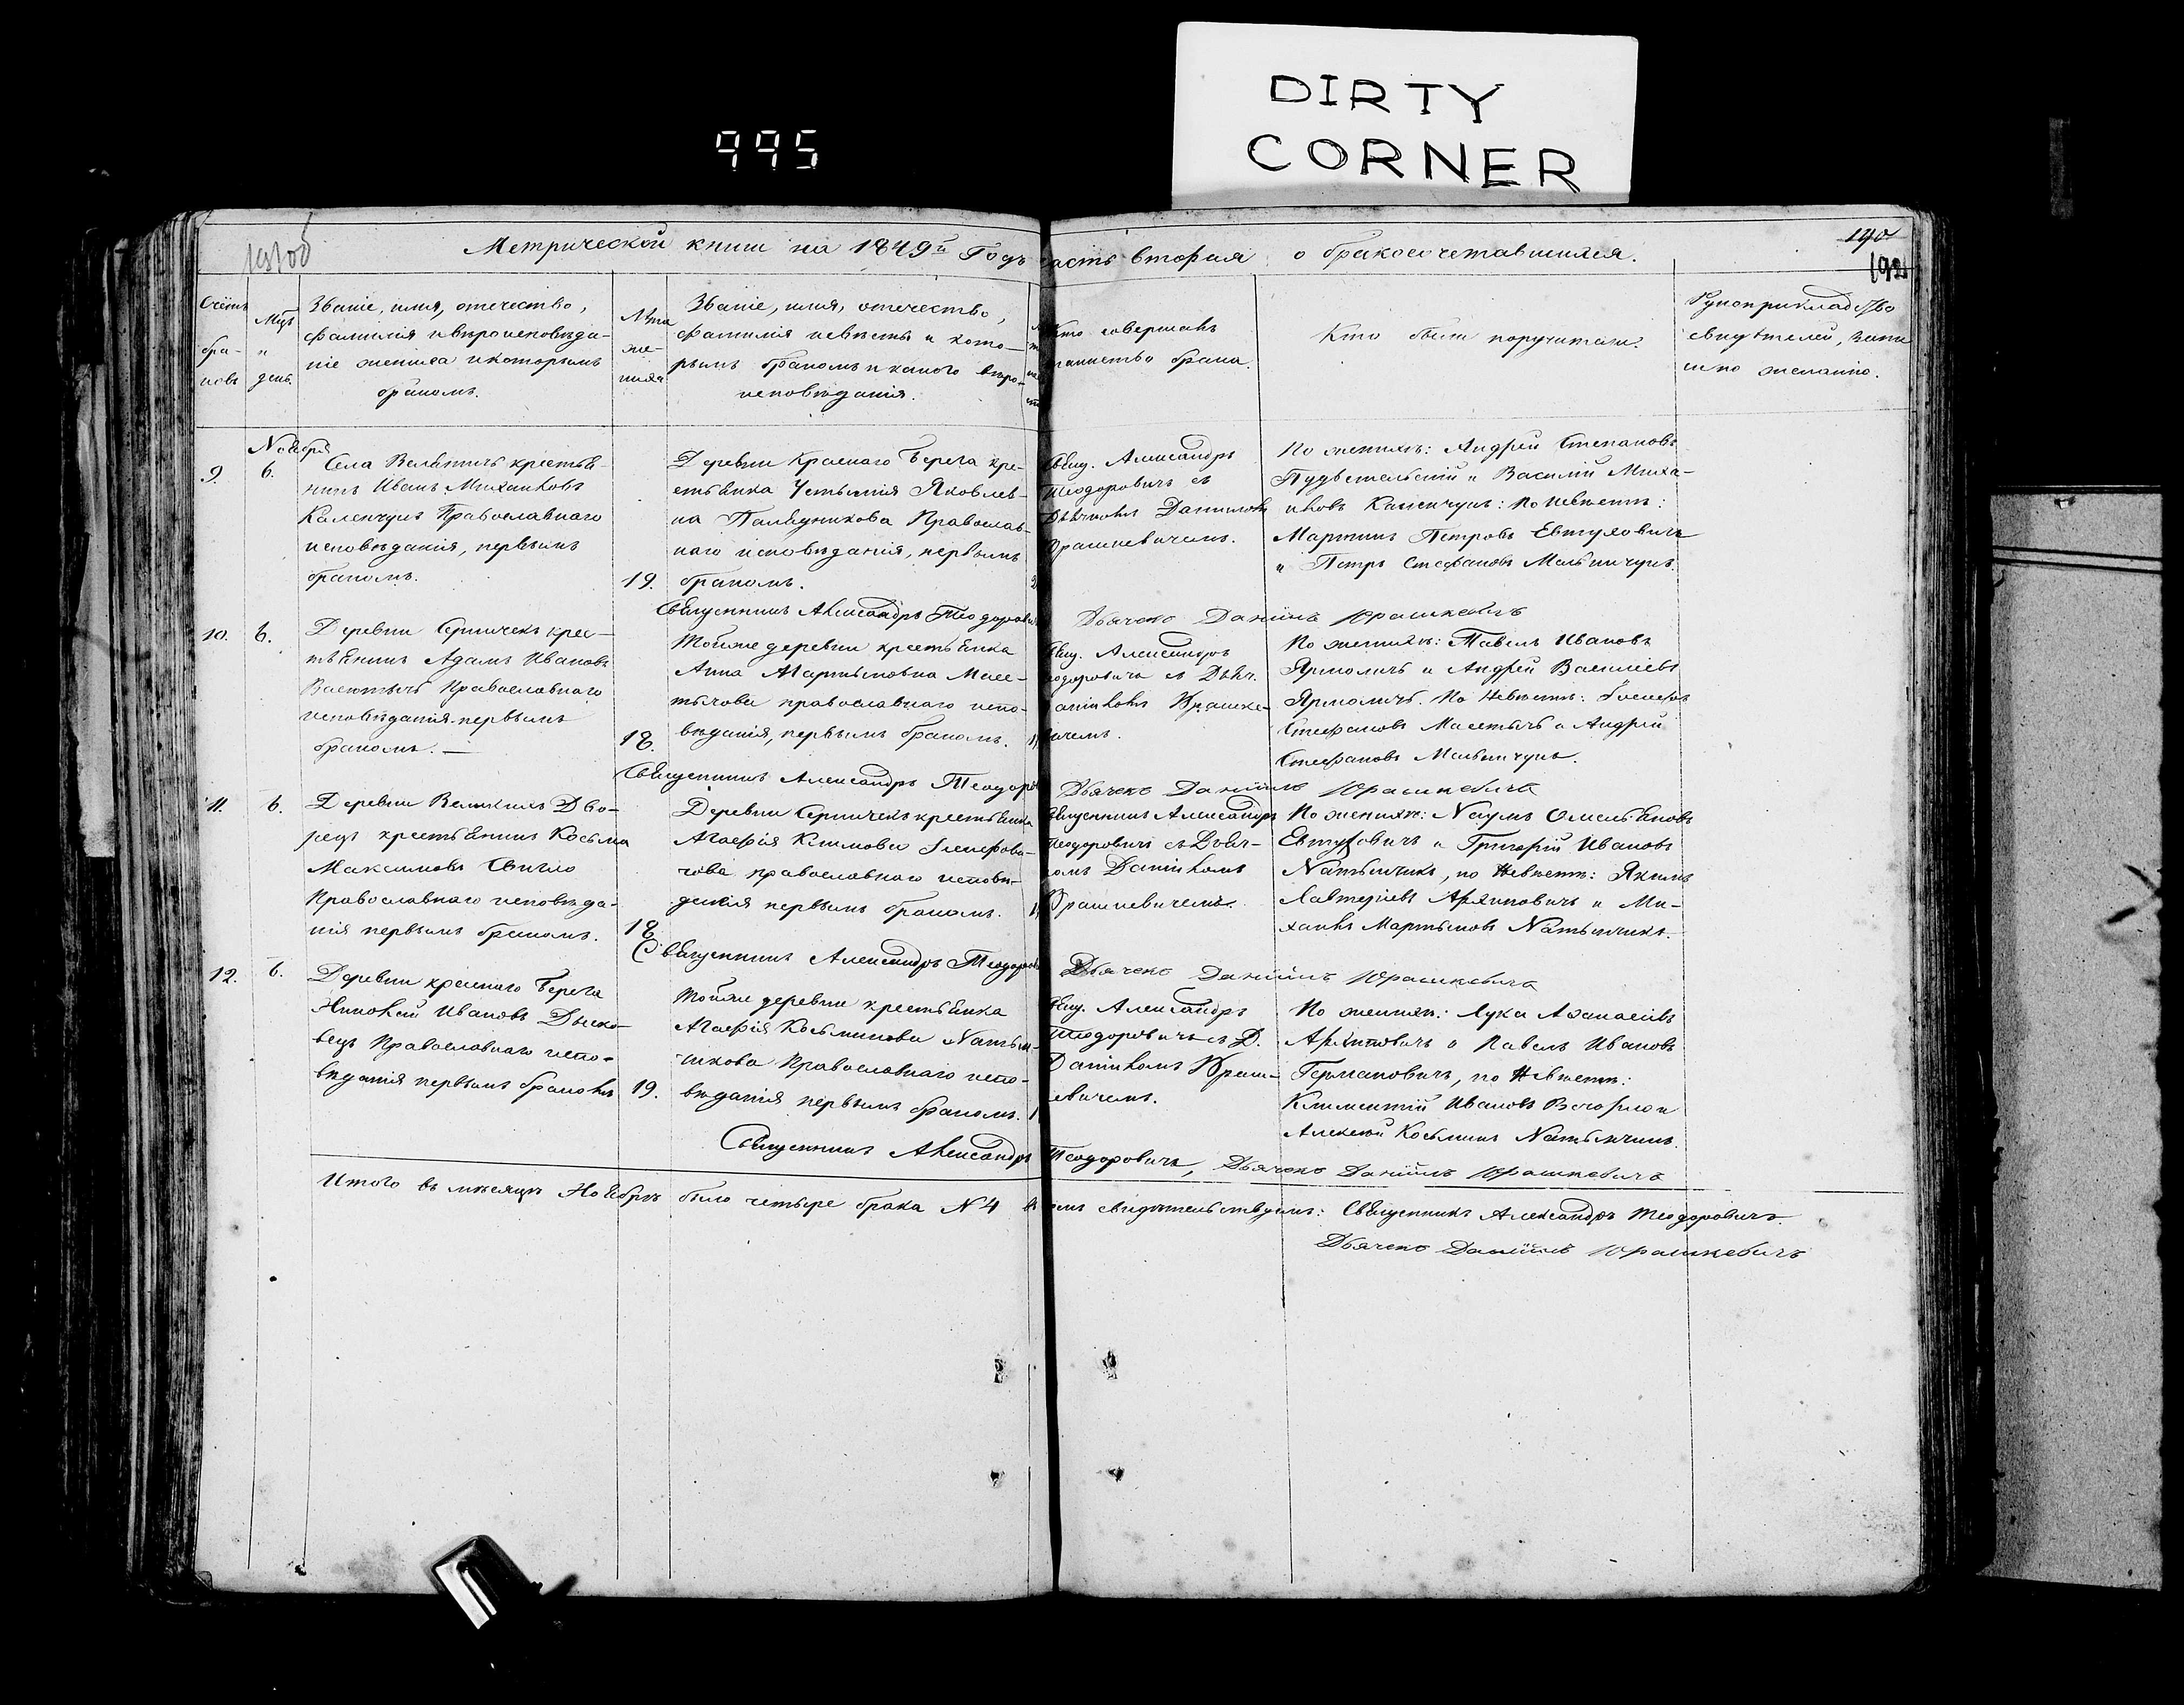 DIRTY
CORNER
995
Метрической книги на 1849й Годъ часть вторая о бракосочетавшихся.
140
192
Счетъ бра-ковъ
Мцъ и день.
Званіе, имя, отечество,
фамилія и вѣроисповѣда-
ніе жениха и которымъ
бракомъ.
Лѣта же-ниха
Званіе, имя, отечество,
фамилія невѣсты и кото-
рымъ бракомъ и какого вѣро-
исповѣданія.
Кто совершалъ
таинство брака.
Кто были поручители.
Рукоприкладство
свидѣтелей, записи
по желанію.
Ноября
9. 6.
Села Велятичъ крестья-
нинъ Иванъ Михаиловъ
Каленчукъ Православнаго
исповѣданія, первымъ
бракомъ.
19.
Деревни Краснаго Берега кре-
стьянка Устинія Яковлев-
на Православ-
наго исповѣданія, первымъ
бракомъ.
Свящ. Александръ
Теодоровичъ съ
Дьячкомъ Даниломъ
Юрашкевичемъ.
По женихѣ: Андрей Степановъ
и Василій Миха-
иловъ Каленчукъ: По невѣстѣ:
Мартинъ Петровъ Евтуховичъ
и Петръ Стефановъ Мельничукъ.
Священникъ Александръ Теодоровичъ Дьячекъ Даніилъ Юрашкевичъ
10. 6.
Деревни Серничекъ крес-
тьянинъ Адамъ Ивановъ
Православнаго
исповѣданія первымъ
бракомъ. —
18.
Тойже деревни крестьянка
Анна Мартыновна Масе-
тычова православнаго испо-
вѣданія, первымъ бракомъ.
Свящ. Александръ
Теодоровичъ съ Дьяч.
Даниломъ Юрашке-
вичемъ.
По женихѣ: Павелъ Ивановъ
Ярмоличъ и Андрей Василіевъ
Ярмоличъ. По Невѣстѣ: Іосифъ
Стефановъ Масетычъ и Андрей
Стефановъ Мельничукъ.
Священникъ Александръ Теодоровичъ Дьячекъ Даніилъ Юрашкевичъ
11. 6.
Деревни Великихъ Дво-
рецъ крестьянинъ Косьма
Максимовъ
Православнаго исповѣда-
нія первымъ бракомъ.
18
Деревни Серничекъ крестьянка
Агафія Климова
православнаго исповѣ-
данія первымъ бракомъ.
Священникъ Александръ
Теодоровичъ съ Дьяч-
комъ Даниломъ
Юрашкевичемъ.
По женихѣ: Наумъ Омельяновъ
Евтуховичъ и Григорій Ивановъ
Натынчикъ, по Невѣстѣ: Якимъ
Лавтеріевъ Архиповичъ и Ми-
хаилъ Мартыновъ Натынчикъ.
Священникъ Александръ Теодоровичъ Дьячекъ Даніилъ Юрашкевичъ
12. 6.
Деревни краснаго Берега
Николай Ивановъ
Православнаго испо-
вѣданія первымъ бракомъ
19.
Тойже деревни крестьянка
Агафія Косьминова Натын-
чикова Православнаго испо-
вѣданія первымъ бракомъ.
Свящ. Александръ
Теодоровичъ съ Д.
Даниломъ Юраш-
кевичемъ.
По женихѣ: Лука Афанасіевъ
Архиповичъ и Павелъ Ивановъ
Германовичъ, по Невѣстѣ:
Климентій Ивановъ и
Алексѣй Косьминъ Натынчикъ.
Священникъ Александръ Теодоровичъ, Дьячекъ Даніилъ Юрашкевичъ
Итого въ мѣсяцѣ Ноябрѣ было четыре брака N 4 въ чемъ свидѣтельствуемъ: Священникъ Александръ Теодоровичъ.
Дьячекъ Даніилъ Юрашкевичъ